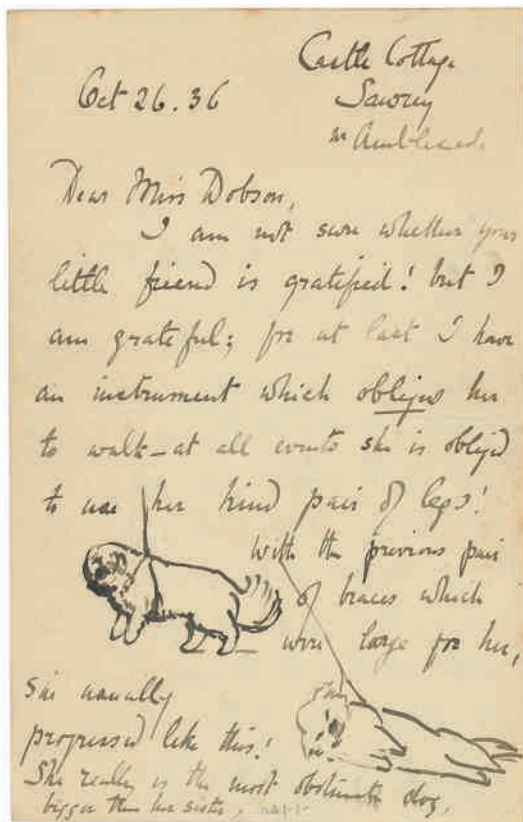 Castle Cottage
Oct 26. 36
Sawrey
nr Ambleside
Dear Miss Dobson,
I am not sure whether your
little friend is gratified! but I
am grateful; for at last I have
an instrument which obliges her
to walk — at all events she is oblijd
to use her hind pair of legs!
With the previous pair
of braces which
were large for her,
she usually
progressed like this!
She really is the most obstinate dog,
bigger than her sister,